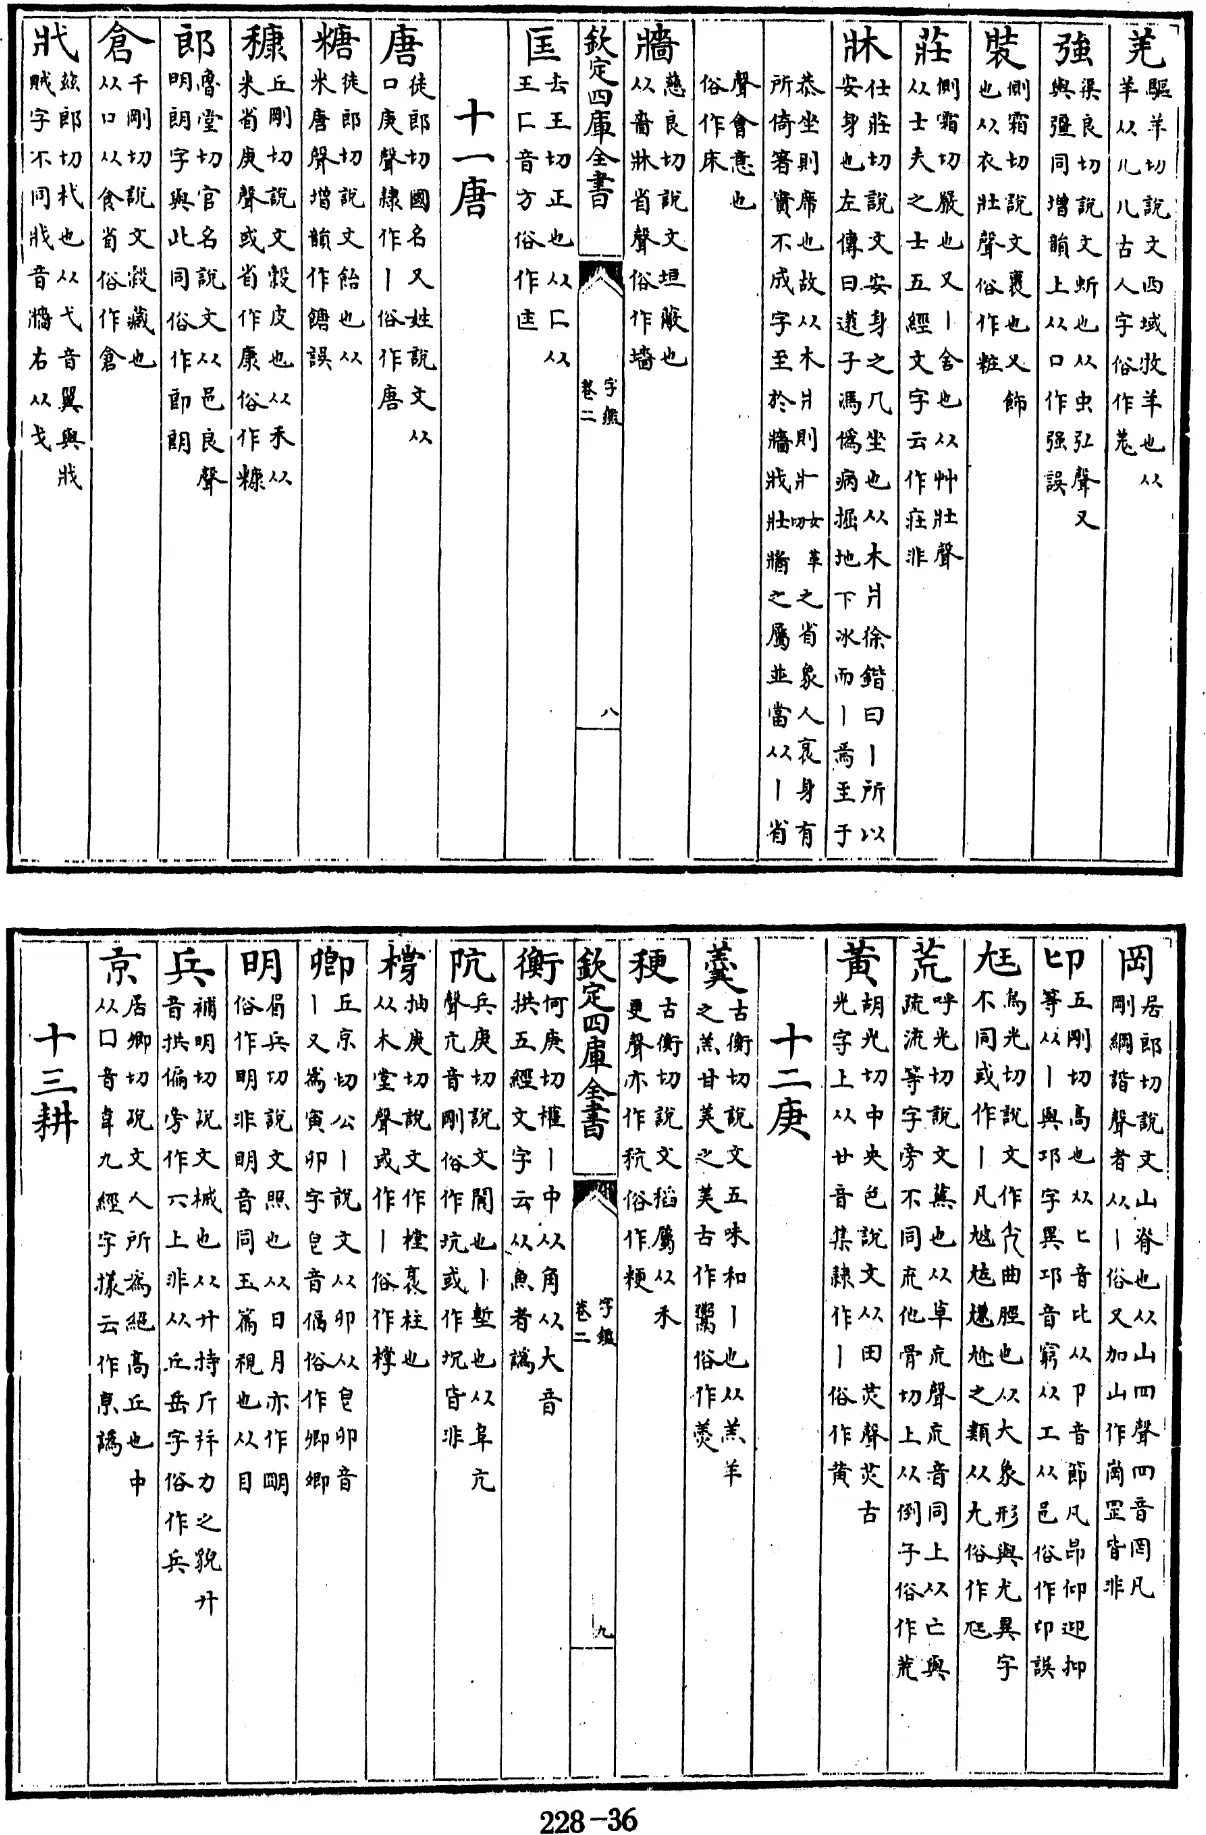 羌驅羊切說文西域牧羊也从羊从儿儿古人字俗作羗
強渠良切說文蚚也从虫弘聲又與彊同增韻上从口作强誤
裝側霜切說文裹也又飾也从衣壯聲俗作粧
莊側霜切嚴也又丨舍也从艸壯聲从士大夫之士五經文字云作庄非
牀仕莊切說文安身之几坐也从木爿徐鍇曰丨所以安身也左傳曰薳子馮僞病掘地下冰而丨焉至于
恭坐則席也故从木爿則爿女革切之省象人衺身有所倚著實不成字至於牆戕壯牄之屬並當从丨省
聲會意也俗作床
牆慈良切說文垣蔽也从嗇牀省聲俗作墻
欽定四庫全書
字鑑
卷二
八
匡去王切正也从匚从王匚音方俗作匡
十一唐
唐徒郎切國名又姓說文从口庚聲隸作丨俗作唐
糖徒郎切說文飴也从米唐聲增韻作餹誤
穅丘剛切說文穀皮也从禾从米省庚聲或省作康俗作糠
郎魯堂切官名說文从邑良聲明朗字與此同俗作郎朗
倉千剛切說文穀藏也从口从食省俗作倉
牂玆郎切杙也从弋音翼與戕賊字不同戕音牆右从戈
岡居郎切說文山脊也从山罒聲罒音罔凡剛綱諧聲者从丨俗又加山作崗罡皆非
卬五剛切高也从匕音比从卩音節凡昂仰迎抑等从丨與邛字異邛音窮从工从邑俗作卬誤
尪烏光切說文作尢曲脛也从大象形與尤異字不同或作丨凡尪尲尥之類从尢俗作尫
荒呼光切說文蕪也从艸㐬聲㐬音同上从亡與疏流等字旁不同㐬他骨切上从倒子俗作荒
黃胡光切中央色說文从田炗聲炗古光字上从廿音集隸作丨俗作黄
十二庚
羹古衡切說文五味和丨也从羔羊之羔甘美之美古作䰞俗作羮
稉古衡切說文稻屬从禾更聲亦作秔俗作粳
欽定四庫全書
字鑑
卷二
九
衡何庚切權丨中从角从大音拱五經文字云从魚者譌
阬丘庚切說文閬也丨塹也从𨸏亢聲亢音剛俗作坑或作坈皆非
樘抽庚切說文作樘衺柱也从木堂聲或作丨俗作撐
卿丘京切公丨說文从卯从皀卯音丨又爲寅卯字皀音偪俗作卿郷
明眉兵切說文照也从日月亦作朙俗作明非明音同玉篇視也从目
兵補明切說文械也从廾持斤幷力之貌廾音拱偏旁作六上非从丘岳字俗作兵
京居卿切說文人所爲絕高丘也中从口音韋九經字㨾云作亰譌
十三耕
228-36